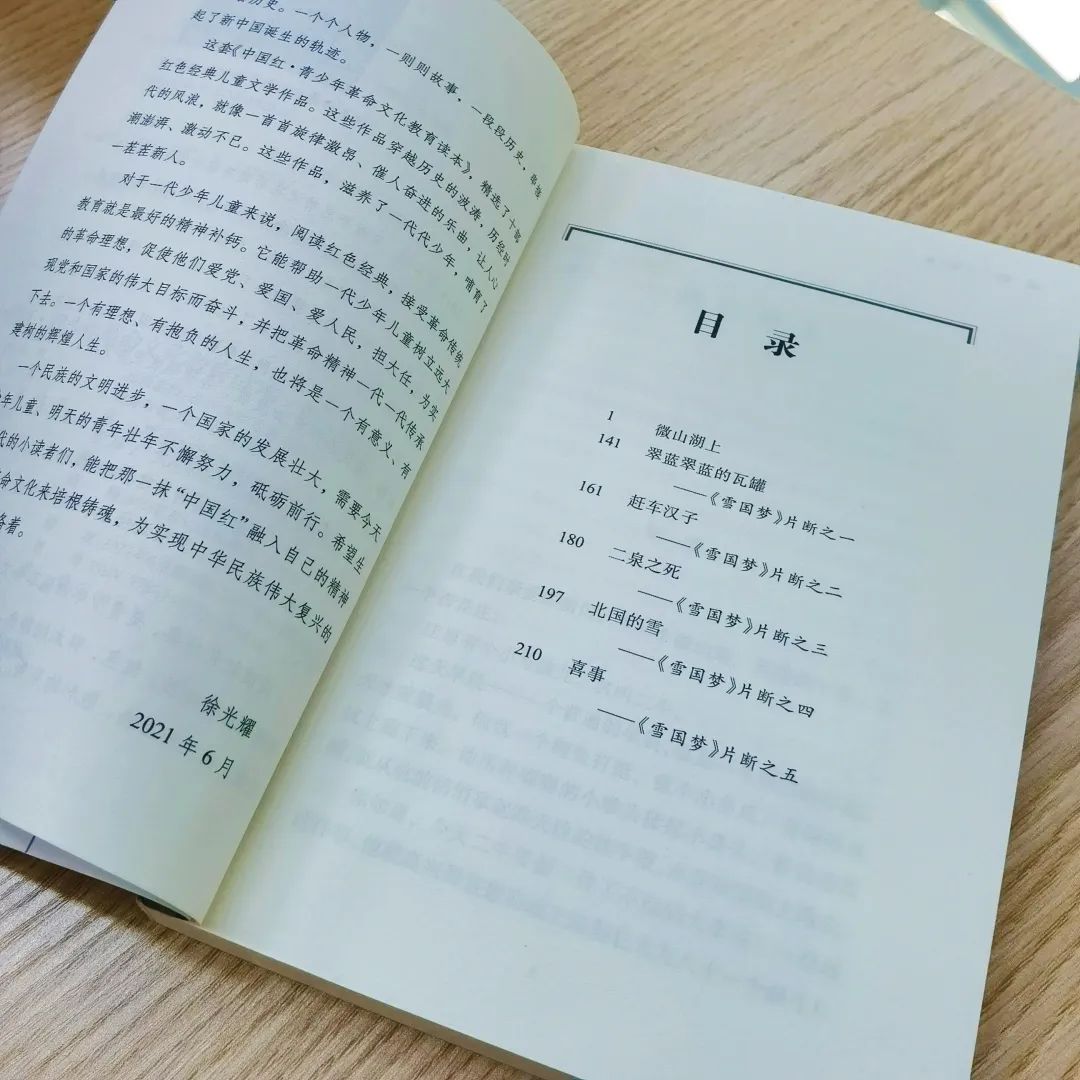 历史。一个个人物，一则则故事，一段段历史，串连
起了新中国诞生的轨迹。
这套《中国红·青少年革命文化教育读本》，精选了十部
红色经典儿童文学作品。这些作品穿越历史的波涛，历经时
代的风浪，就像一首首旋律激昂、催人奋进的乐曲，让人心
潮澎湃、激动不已。这些作品，滋养了一代代少年，哺育了
一茬茬新人。
对于一代少年儿童来说，阅读红色经典，接受革命传统
教育就是最好的精神补钙。它能帮助一代少年儿童树立远大
的革命理想，促使他们爱党、爱国、爱人民，担大任，为实
现党和国家的伟大目标而奋斗，并把革命精神一代一代传承
下去。一个有理想、有抱负的人生，也将是一个有意义、有
建树的辉煌人生。
一个民族的文明进步，一个国家的发展壮大，需要今天
年儿童、明天的青年壮年不懈努力，砥砺前行。希望生
代的小读者们，能把那一抹“中国红”融入自己的精神
命文化来培根铸魂，为实现中华民族伟大复兴的
着。
徐光耀
2021年6月
目录
1 微山湖上
141 翠蓝翠蓝的瓦罐
——《雪国梦》片断之一
161 赶车汉子
——《雪国梦》片断之二
180 二泉之死
——《雪国梦》片断之三
197 北国的雪
——《雪国梦》片断之四
210 喜事
——《雪国梦》片断之五